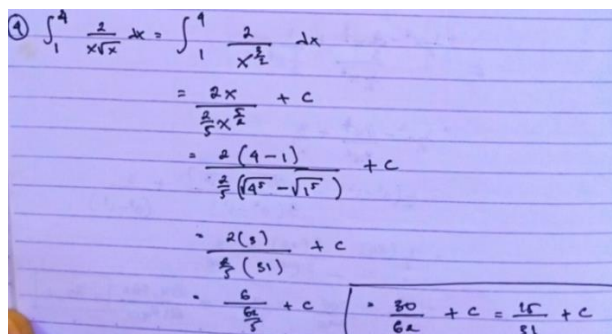 ④ ∫₁⁴ 2/(x√x) dx = ∫₁⁴ 2/(x^(3/2)) dx
= 2x/((2/5)x^(5/2)) + c
= 2(4-1)/((2/5)(√4⁵ - √1⁵)) + c
= 2(3)/((2/5)(31)) + c
= 6/(62/5) + c = 30/62 + c = 15/31 + c